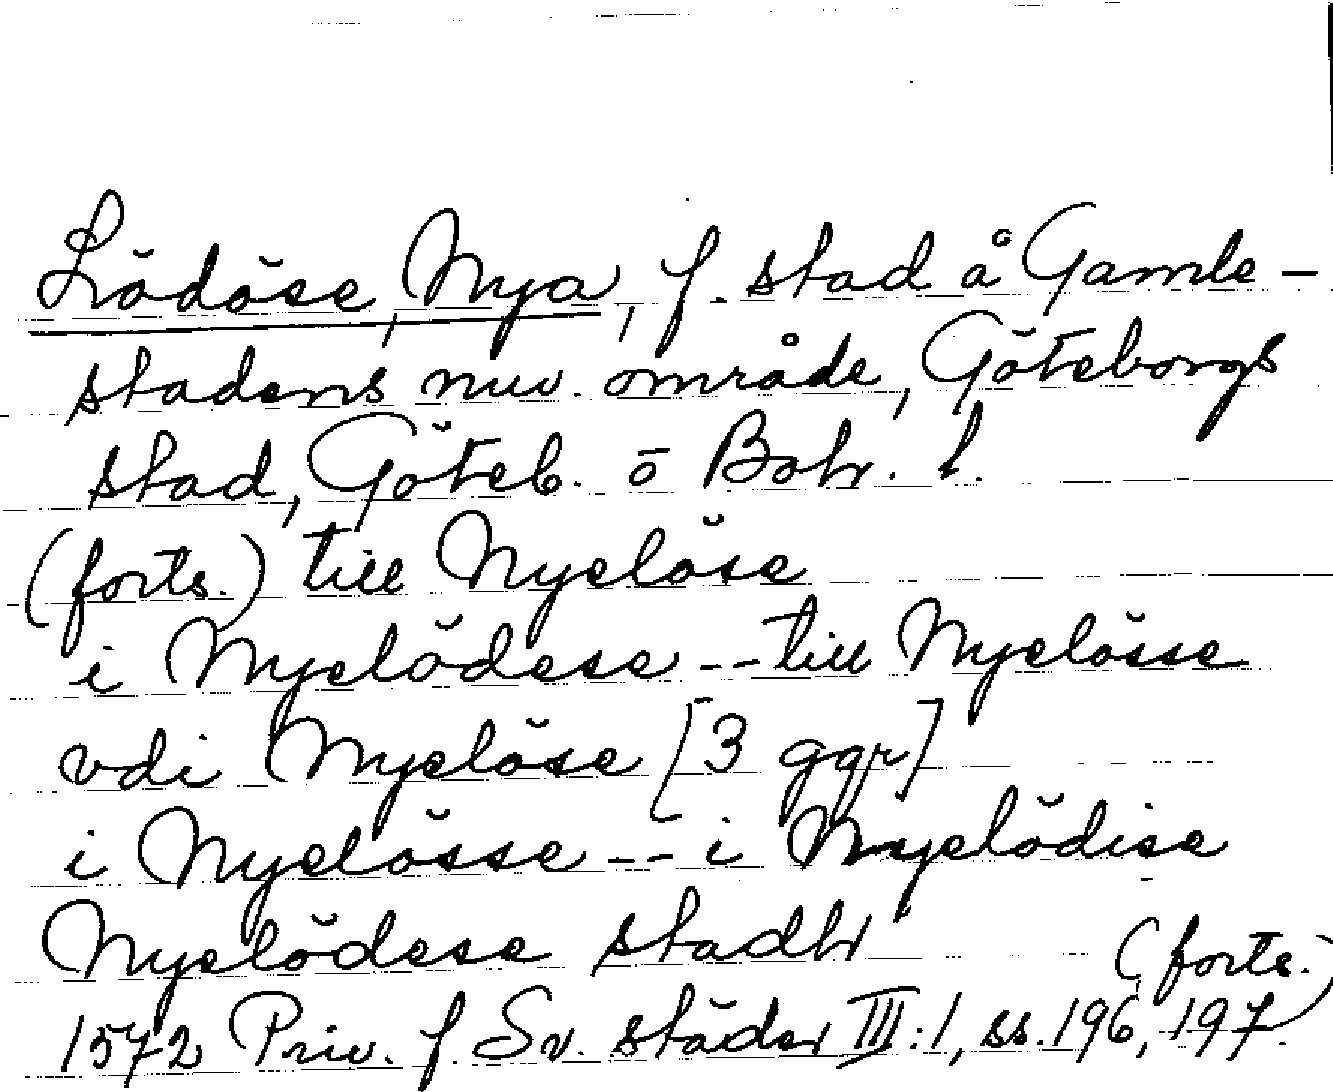 Lödöse, Nya, f. stad å Gamle-
stadens nuv. område, Göteborgs
stad, Göteb. o Boh. l.
(forts.) till Nyelöse
i Nyelödese -- till Nyelösse
vdi Nyelöse [3 ggr]
i Nyelösse -- i Nyelödise
Nyelödese stadh
(forts.)
1572 Priv. f. Sv. städer III:1, ss. 196, 197.